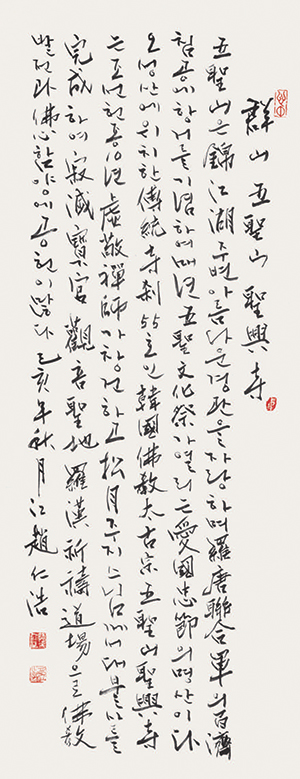 群山 五聖山 聖興寺
五聖山은 錦江湖 주변 아름다운 경관을 자랑하며 羅唐聯合軍의 百濟
침공에 항거를 기념하여 매년 五聖文化祭가 열리는 愛國忠節의 명산이다
오성산에 위치한 傳統寺刹 55호인 韓國佛敎太古宗 五聖山 聖興寺
는 조선 헌종 10년 禪師가 창건하고 松月 주지스님께서 대불사를
完成하여 寂滅寶宮 觀音聖地 羅漢祈禱道場으로 佛敎
발전과 佛心함양에 공헌이 많다 己亥年 秋 月江 趙仁浩